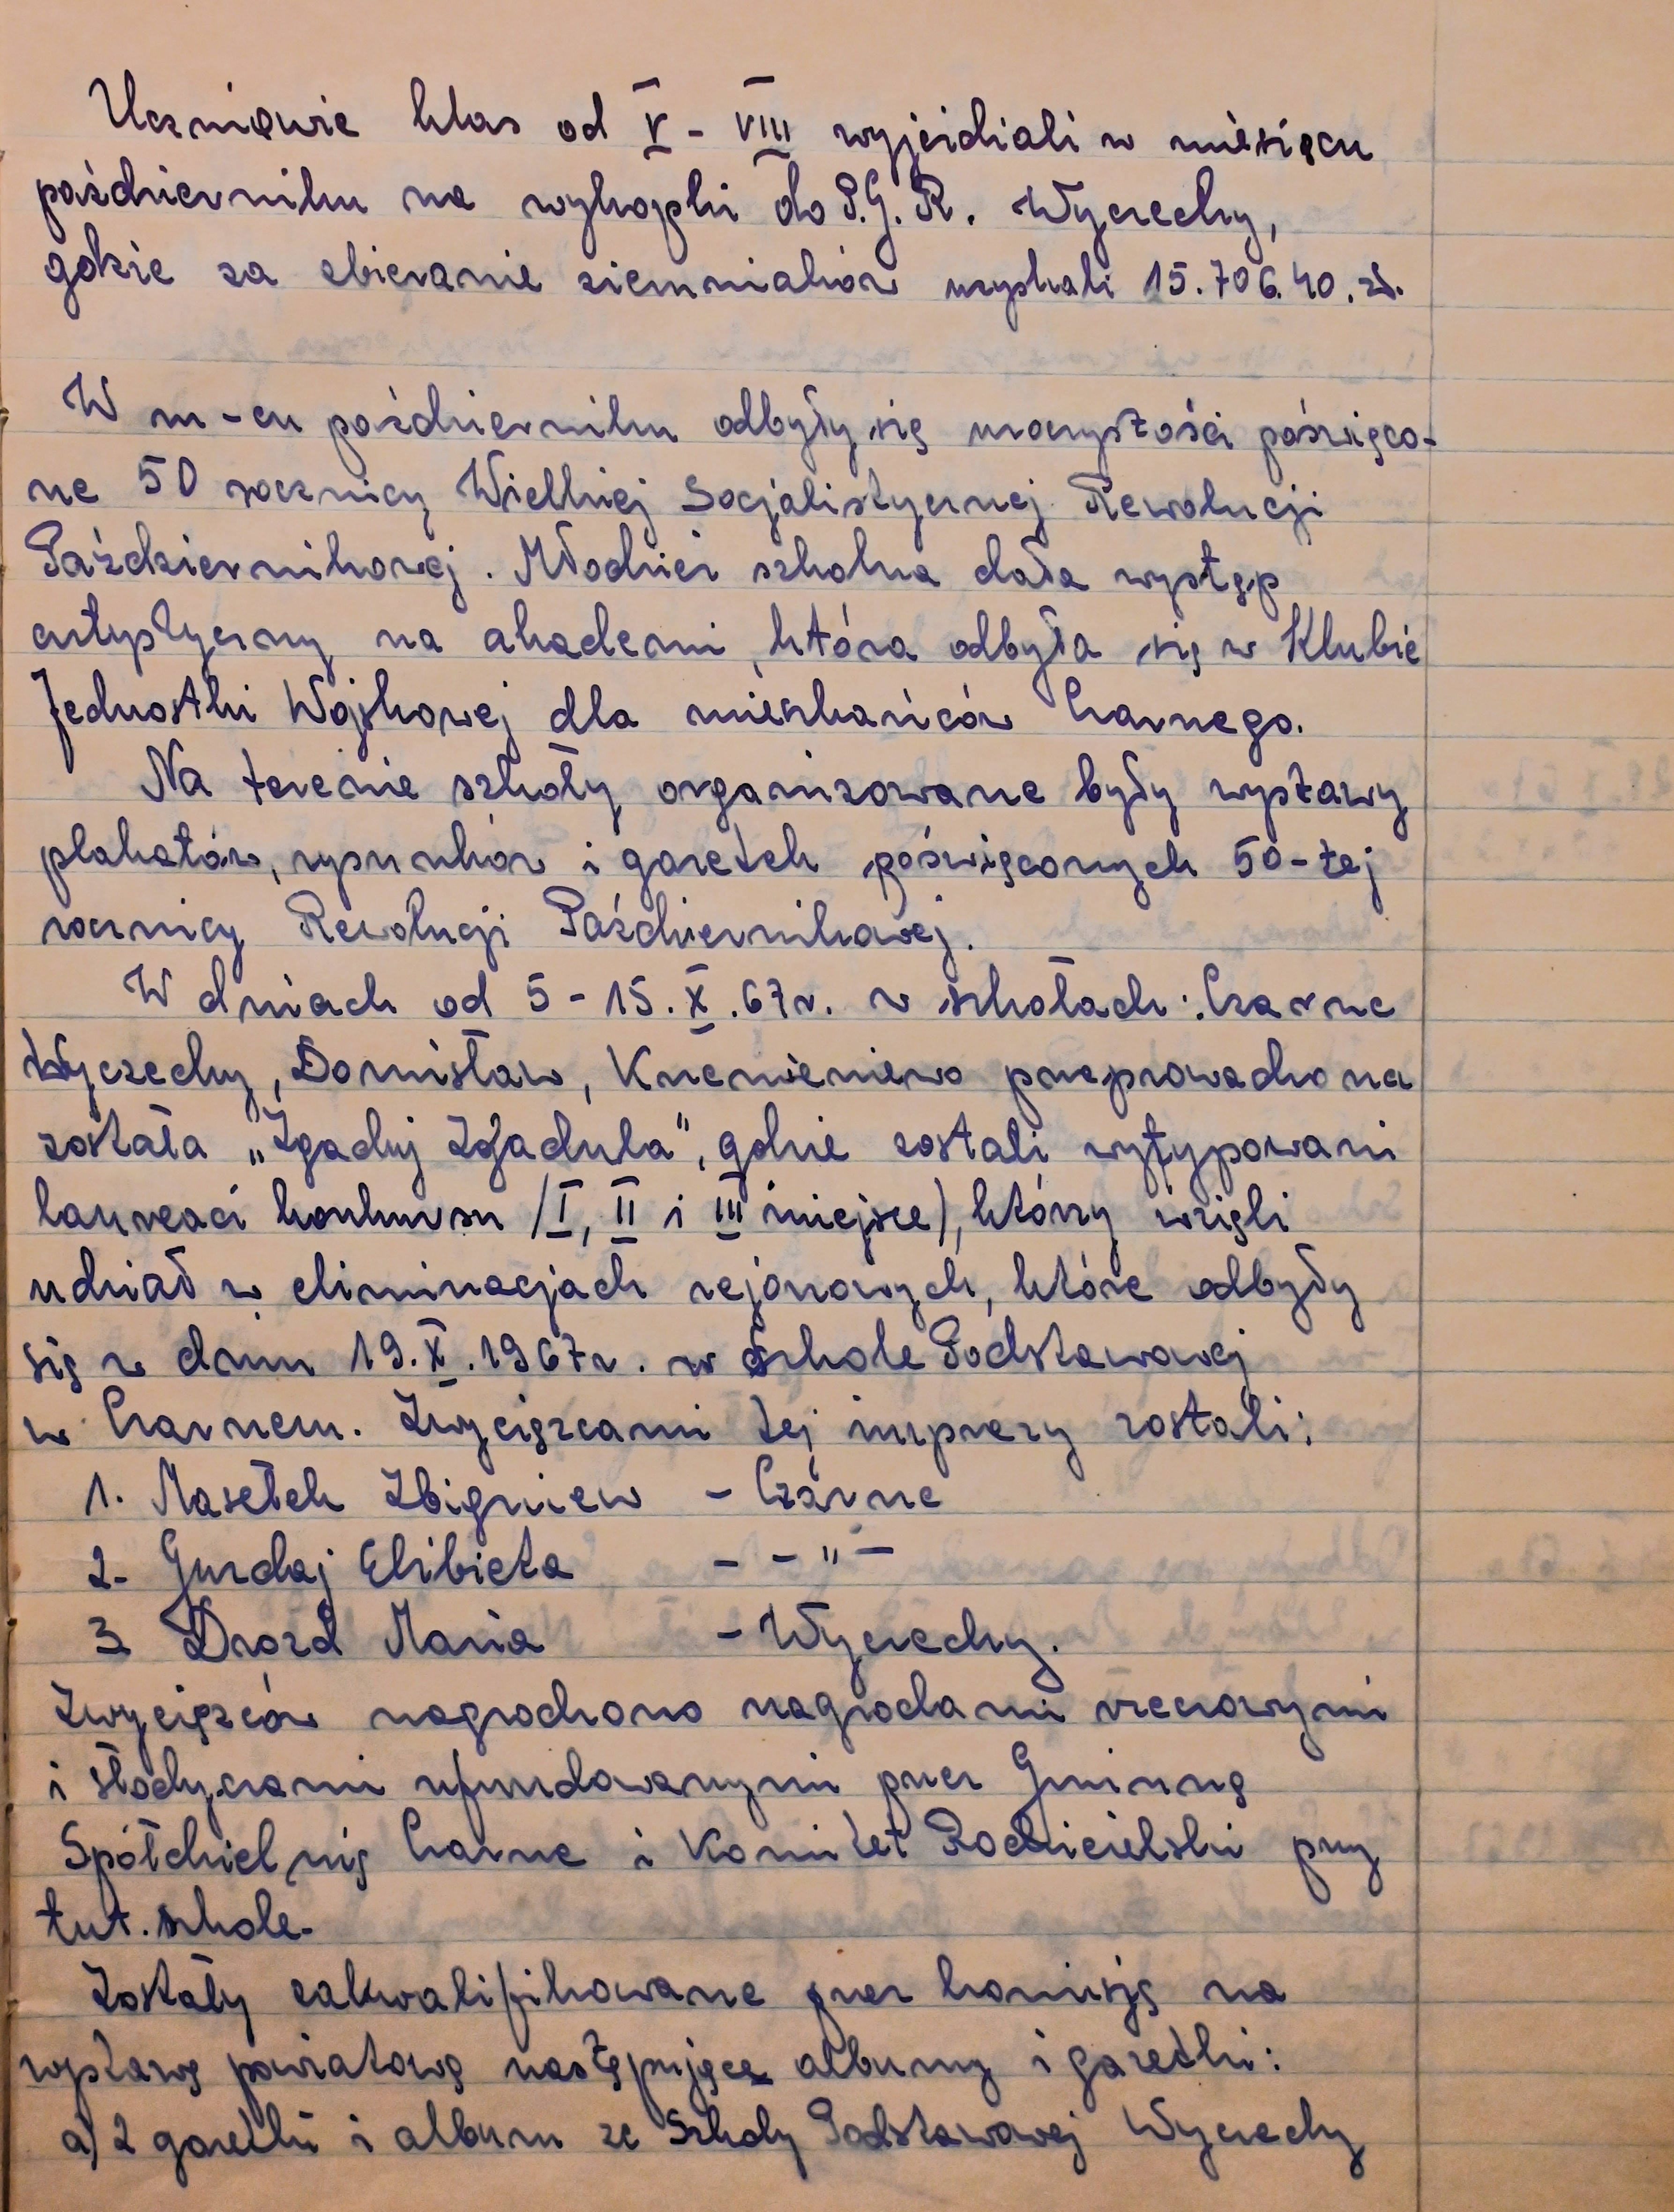 Uczniowie klas od V - VIII wyjeżdżali w miesiącu
październiku na wykopki do P.G.R. Wyczechy,
gdzie za zbieranie ziemniaków uzyskali 15.706.40.zł.
W m-cu październiku odbyły się uroczystości poświęco-
ne 50 rocznicy Wielkiej Socjalistycznej Rewolucji
Październikowej. Młodzież szkolna dała występ
artystyczny na akademi, która odbyła się w Klubie
Jednostki Wojskowej dla mieszkańców Czarnego.
Na terenie szkoły organizowane były wystawy
plakatów, rysunków i gazetek poświęconych 50-tej
rocznicy Rewolucji Październikowej.
W dniach od 5 - 15.X.67r. w szkołach: Czarne
Wyczechy, Domisław, Krzemieniewo przeprowadzona
została „Zgaduj Zgadula", gdzie zostali wytypowani
laureaci konkursu /I, II i III miejsce), którzy wzięli
udział w eliminacjach rejonowych, które odbyły
się w dniu 19.X.1967r. w Szkole Podstawowej
w Czarnem. Zwycięzcami tej imprezy zostali:
1. Masełek Zbigniew - Czarne
2. Gurdaj Elżbieta - - " -
3. Drozd Maria - Wyczechy.
Zwycięzców nagrodzono nagrodami rzeczowymi
i słodyczami ufundowanymi przez Gminną
Spółdzielnię Czarne i Komitet Rodzicielski przy
tut. szkole.
Zostały zakwalifikowane przez komisję na
wystawę powiatową następujące albumy i gazetki:
a) 2 gazetki i album ze Szkoły Podstawowej Wyczechy